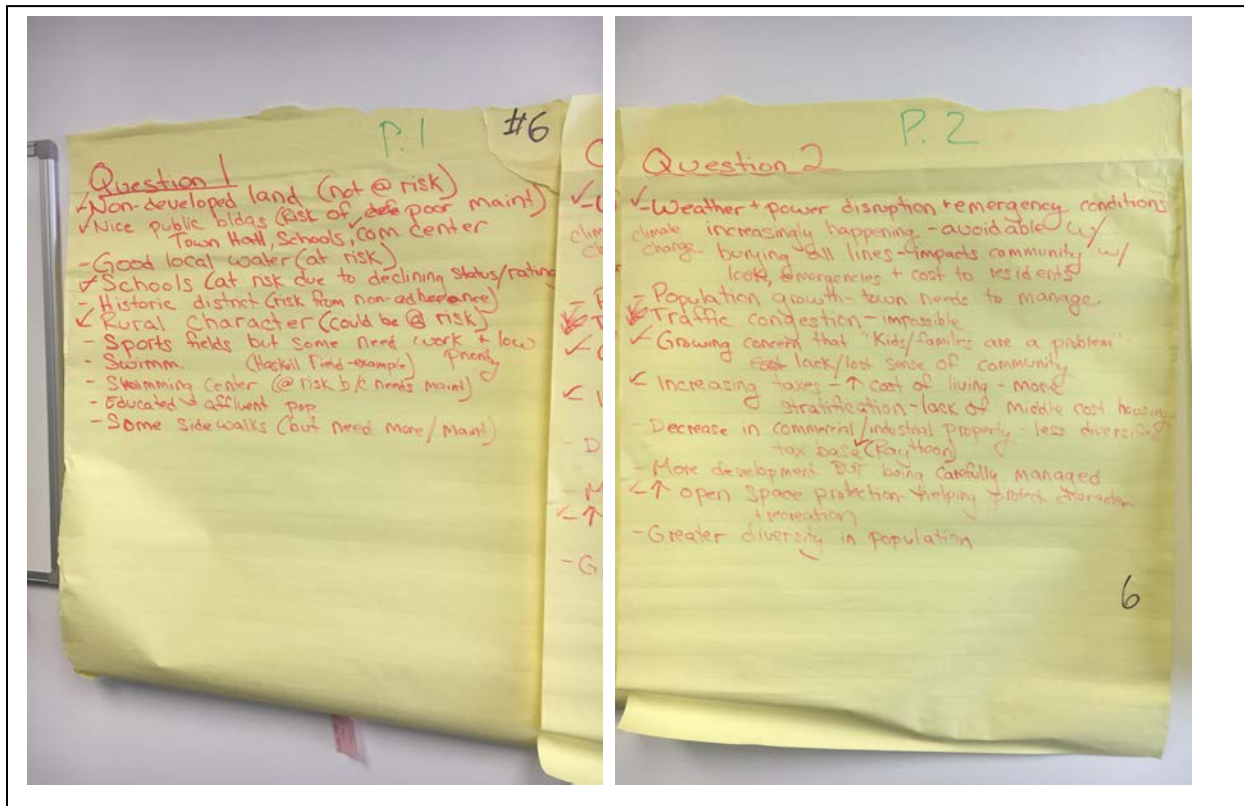 P.1
#6
Question 1
✓-Non-developed land (not @ risk)
✓Nice public bldgs (Risk of poor maint)
Town Hall, Schools, com center
-Good local water (at risk)
✓Schools (at risk due to declining status/rating
-Historic district (risk from non-adherence)
✓Rural Character (could be @ risk)
-Sports fields but some need work + low
-Swimm. (Haskell Field-example) priority
-Swimming center (@ risk b/c needs maint)
-Educated + affluent pop
-Some sidewalks (but need more/maint)
P.2
Question 2
✓-Weather + power disruption + emergency conditions
climate increasingly happening - avoidable w/
change burying all lines - impacts community w/
emergencies + cost to residents
-Population growth - town needs to manage
Traffic congestion - impossible
✓-Growing concern that "Kids/families are a problem"
lack/lost sense of community
✓Increasing taxes - ↑ cost of living - more
stratification - lack of middle cost housing
-Decrease in commercial/industrial property - less
tax base (Raytheon)
-More development BUT being carefully managed
✓-↑ open space protection helping protect character
+ recreation
-Greater diversity in population
6